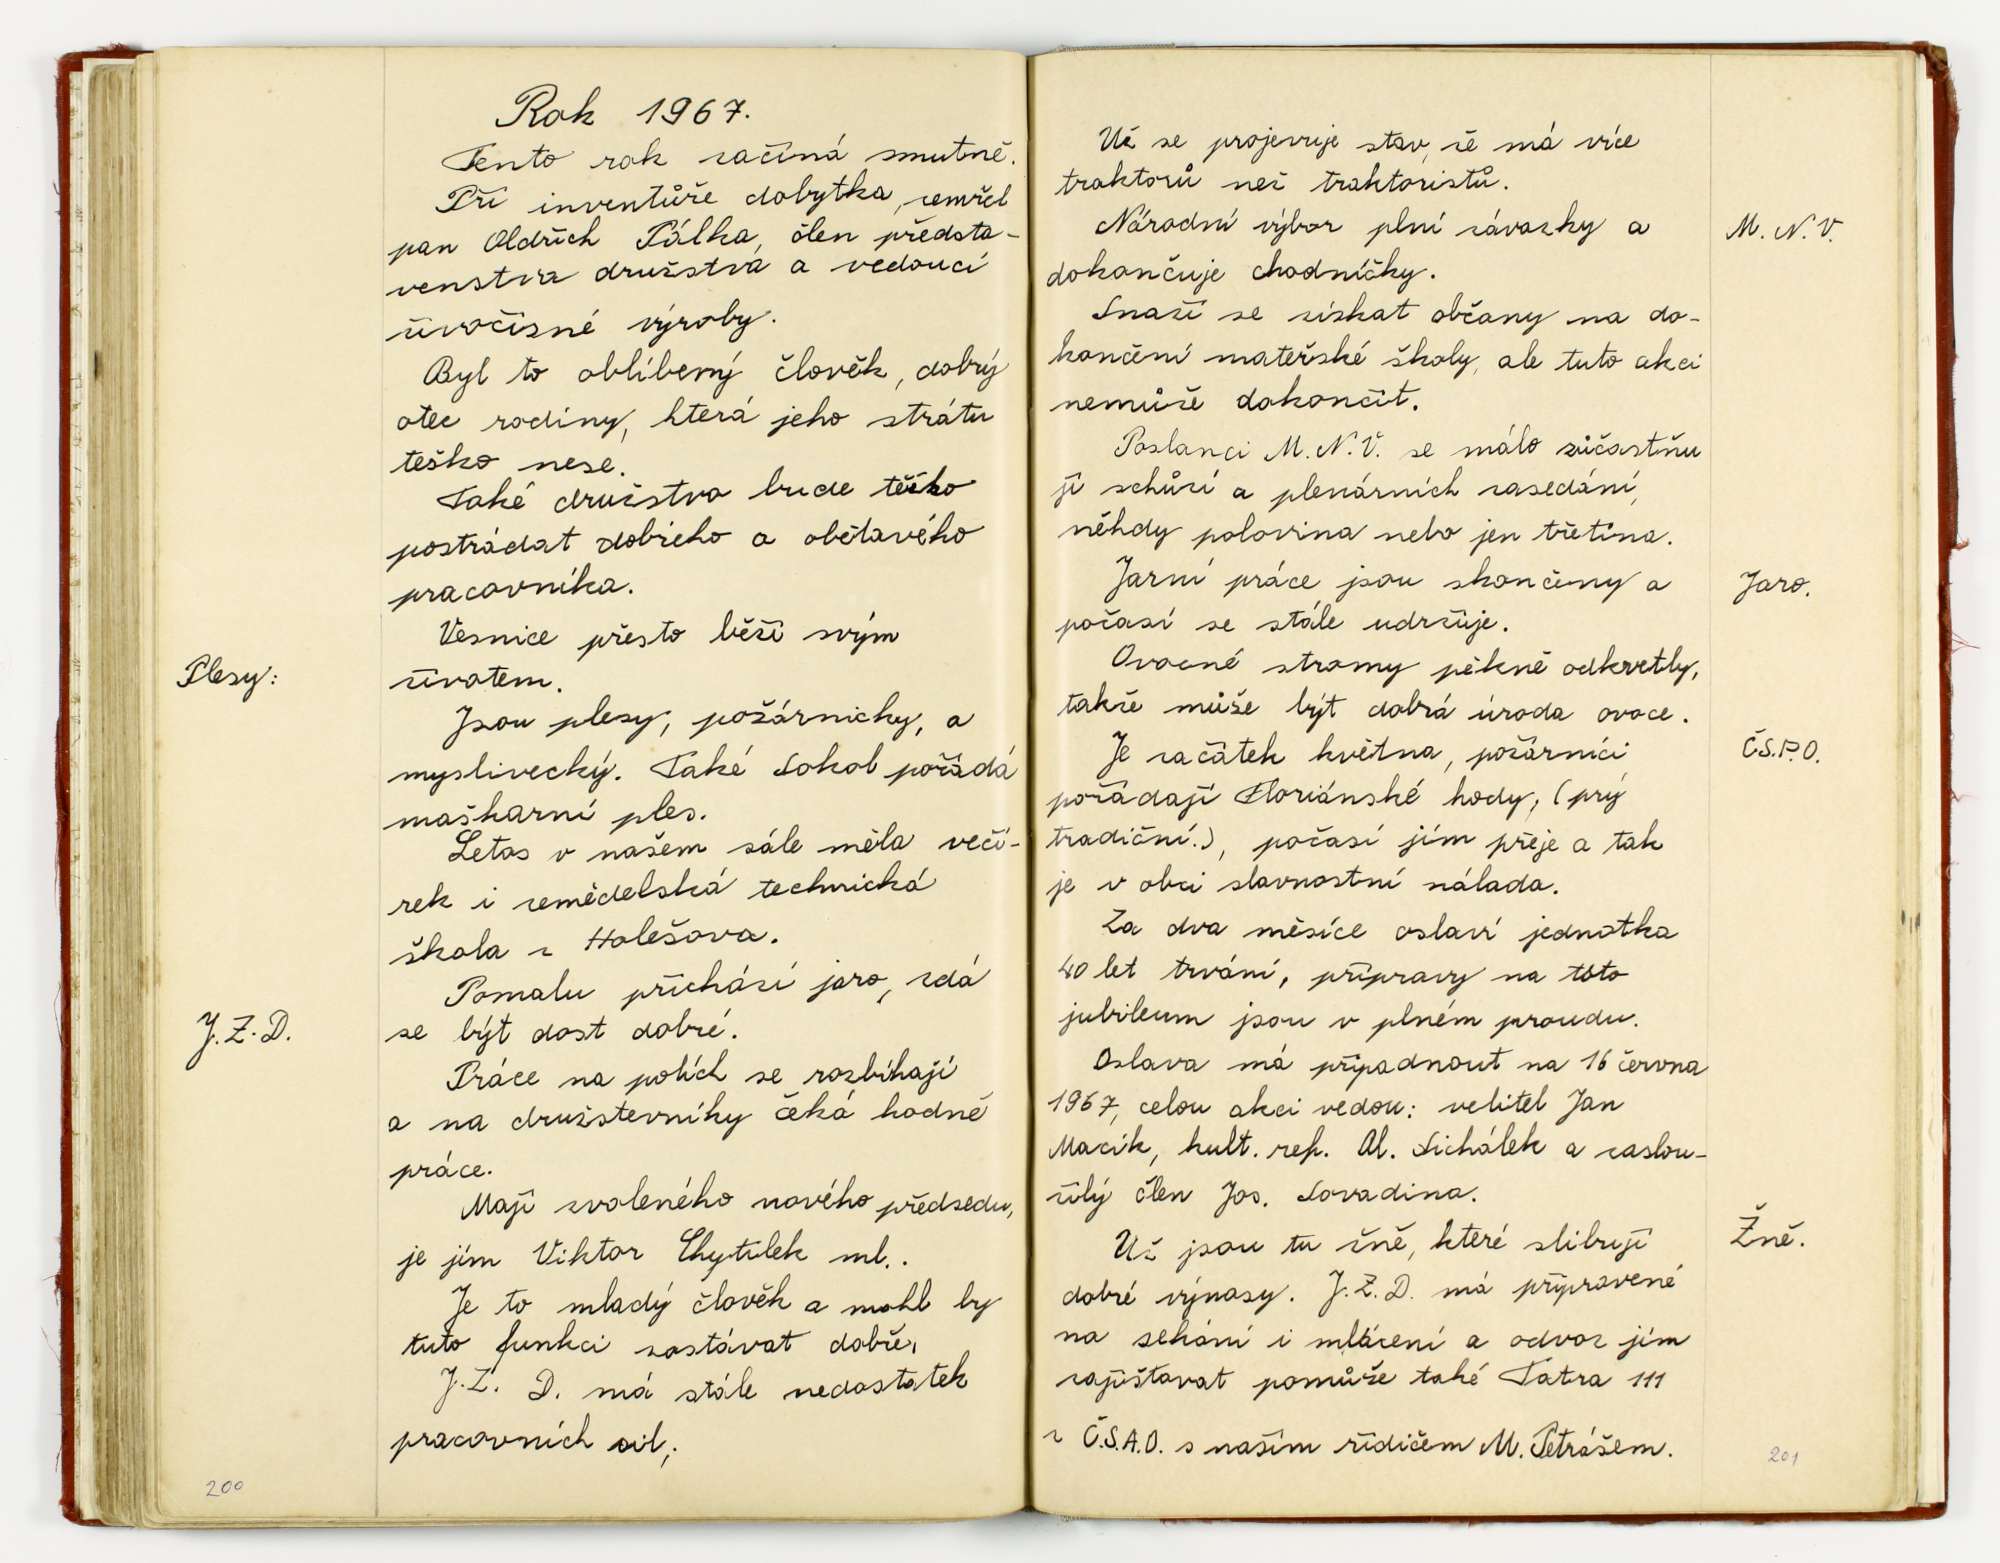 Rok 1967.
Tento rok začíná smutně.
Při inventůře dobytka, zemřel
pan Oldřich Pálka, člen předsta-
venstva družstva a vedoucí
živočisné výroby.
Byl to oblíbený člověk, dobrý
otec rodiny, která jeho strátu
teško nese.
Také družstvo bude těžko
postrádat dobrého a obětavého
pracovníka.
Vesnice přesto běží svým
Plesy:
životem.
Jsou plesy, požárnicky, a
myslivecký. Také Sokol pořádá
maškarní ples.
Letos v našem sále měla večí-
rek i zemědelská technická
škola z Holešova.
Pomalu přichází jaro, zdá
J.Z.D.
se být dost dobré.
Práce na polích se rozbíhají
a na družstevníky čeká hodně
práce.
Mají zvoleného nového předsedu,
je jím Viktor Chytilek ml..
Je to mladý člověk a mohl by
tuto funkci zastávat dobře.
J.Z. D. má stále nedostatek
pracovních sil;
200
Už se projevuje stav, že má více
traktorů než traktoristů.
Národní výbor plní závazky a
M. N. V.
dokončuje chodníčky.
Snaží se získat občany na do-
končení mateřské školy, ale tuto akci
nemůže dokončit.
Poslanci M.N.V. se málo zůčastňu
jí schůzí a plenárních zasedání,
někdy polovina nebo jen třetina.
Jarní práce jsou skončeny a
Jaro.
počasí se stále udržuje.
Ovocné stromy pěkně odkvetly,
takže může být dobrá úroda ovoce.
Je začátek května, požárníci
Č.S.P.O.
pořádají Floriánské hody, (prý
tradiční.), počasí jím přeje a tak
je v obci slavnostní nálada.
Za dva měsíce oslaví jednotka
40 let trvání, přípravy na toto
jubileum jsou v plném proudu.
Oslava má připadnout na 16 června
1967, celou akci vedou: velitel Jan
Macík, kult. ref. Al. Sichálek a zaslou-
žilý člen Jos. Sovadina.
Už jsou tu žně, které slibují
Žně.
dobré výnosy. J.Z.D. má připravené
na sekání i mlácení a odvoz jím
zajišťovat pomůže také Tatra 111
z Č.S.A.O. s našim řidičem M. Petrášem.
201